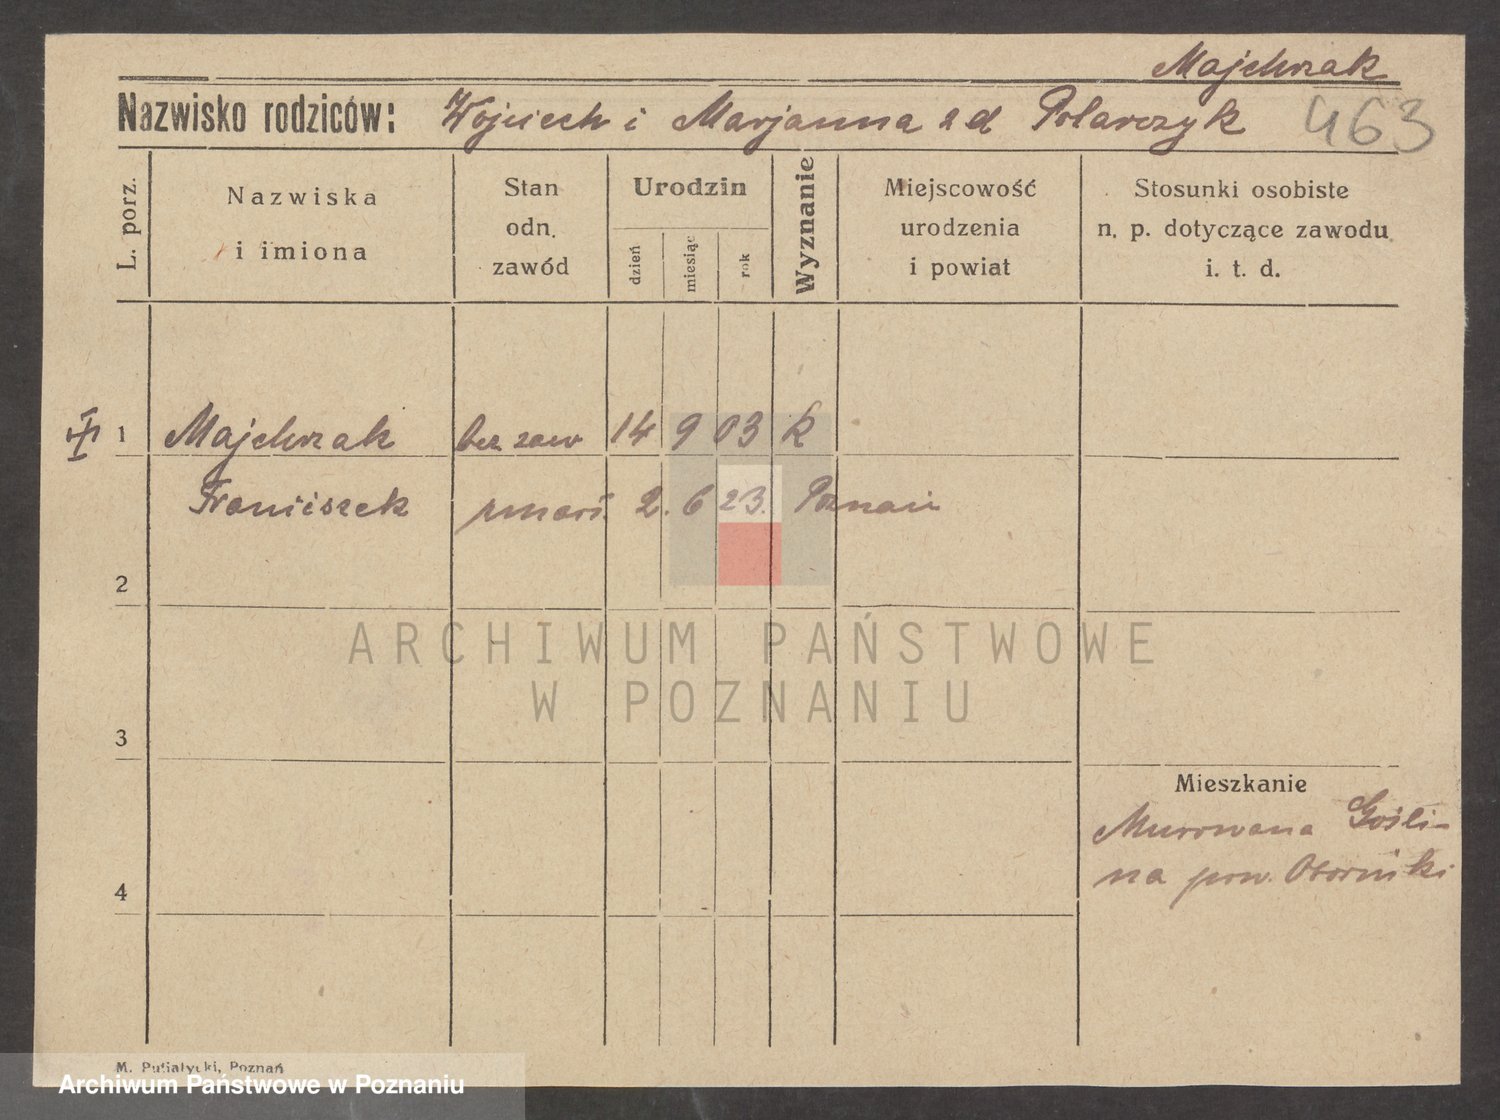 Majchrzak
Nazwisko rodziców: Wojciech i Marjanna z d Polarczyk 463
L. porz.
Nazwiska
i imiona
Stan
odn.
zawód
Urodzin
dzień
miesiąc
rok
Wyznanie
Miejscowość
urodzenia
i powiat
Stosunki osobiste
n. p. dotyczące zawodu
i. t. d.
1 Majchrzak bez zaw 14 9 03 k
Franciszek zmarł. 2. 6 23. Poznań
2
3
4
Mieszkanie
Murowana Gośli-
na pow. Obornicki
ARCHIWUM PAŃSTWOWE
W POZNANIU
M. Putiatycki, Poznań
Archiwum Państwowe w Poznaniu